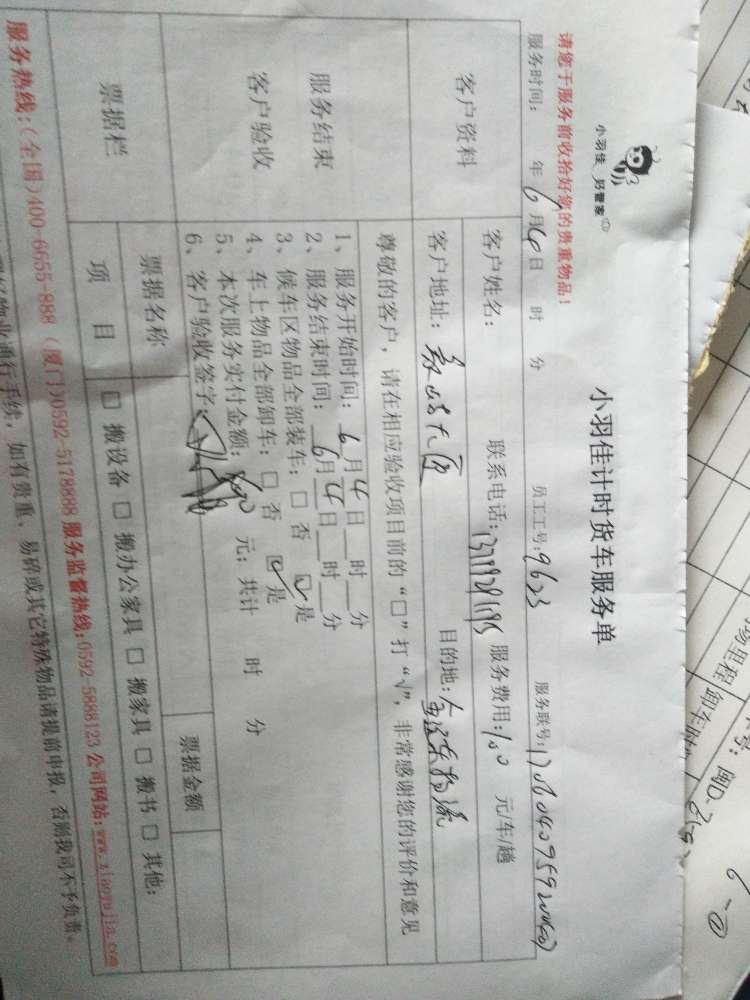 小羽佳 好管家
小羽佳计时货车服务单
请您于服务前收拾好您的贵重物品!
服务时间: 年6月4日 时 分 员工工号:9623 服务联号:
客户资料
客户姓名: 联系电话: 服务费用:100 元/车/趟
客户地址: 目的地:
尊敬的客户,请在相应验收项目前的“□”打“√”,非常感谢您的评价和意见
服务结束
客户验收
1、服务开始时间:6月4日__时__分
2、服务结束时间:6月4日__时__分
3、候车区物品全部装车:□ 否 ☑ 是
4、车上物品全部卸车:□ 否 ☑ 是
5、本次服务实付金额: 元;共计 时 分
6、客户验收签字:
票据栏
票据名称 票据金额
项 目 □ 搬设备 □ 搬办公家具 □ 搬家具 □ 搬书 □ 其他:
服务热线:(全国)400-6655-888 (厦门)0592-5178888 服务监督热线:0592-5888123 公司网站:www.xiaoyujia.com
物业通行手续,如有贵重、易碎或其它特殊物品请提前申报,否则我司不予负责。
里程 卸车时
号: 闽D-